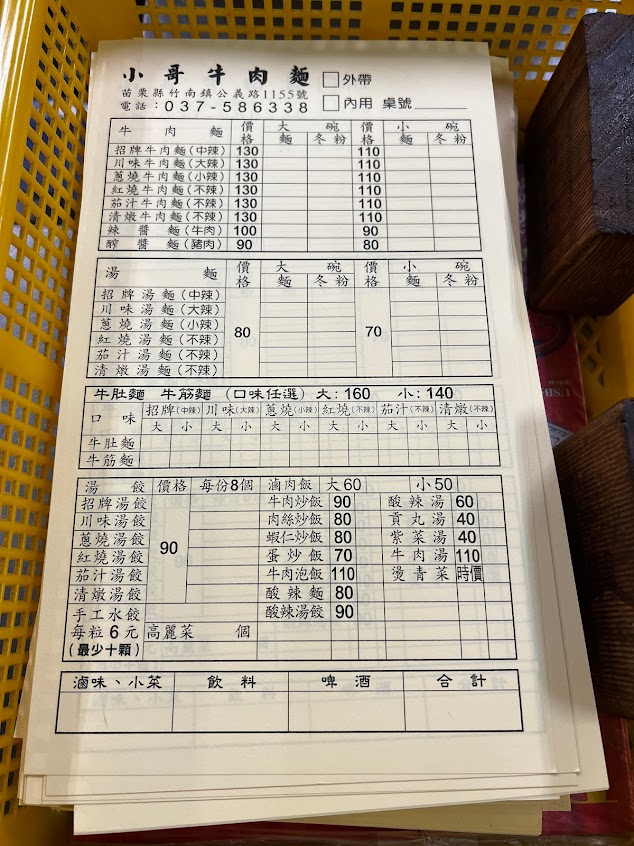 小哥牛肉麵 □外帶
苗栗縣竹南鎮公義路1155號
電話：037-586338 □內用 桌號
牛肉麵 價格 大碗 價格 小碗
麵 冬粉 麵 冬粉
招牌牛肉麵(中辣) 130 110
川味牛肉麵(大辣) 130 110
蔥燒牛肉麵(小辣) 130 110
紅燒牛肉麵(不辣) 130 110
茄汁牛肉麵(不辣) 130 110
清燉牛肉麵(不辣) 130 110
辣醬麵(牛肉) 100 90
醡醬麵(豬肉) 90 80
湯麵 價格 大碗 價格 小碗
麵 冬粉 麵 冬粉
招牌湯麵(中辣)
川味湯麵(大辣)
蔥燒湯麵(小辣) 80 70
紅燒湯麵(不辣)
茄汁湯麵(不辣)
清燉湯麵(不辣)
牛肚麵 牛筋麵 (口味任選) 大:160 小:140
口味 招牌(中辣) 川味(大辣) 蔥燒(小辣) 紅燒(不辣) 茄汁(不辣) 清燉(不辣)
大 小 大 小 大 小 大 小 大 小 大 小
牛肚麵
牛筋麵
湯餃 價格 每份8個 滷肉飯 大60 小50
招牌湯餃 牛肉炒飯 90 酸辣湯 60
川味湯餃 肉絲炒飯 80 貢丸湯 40
蔥燒湯餃 90 蝦仁炒飯 80 紫菜湯 40
紅燒湯餃 蛋炒飯 70 牛肉湯 110
茄汁湯餃 牛肉泡飯 110 燙青菜 時價
清燉湯餃 酸辣麵 80
手工水餃 酸辣湯餃 90
每粒6元 高麗菜 個
(最少十顆)
滷味、小菜 飲料 啤酒 合計